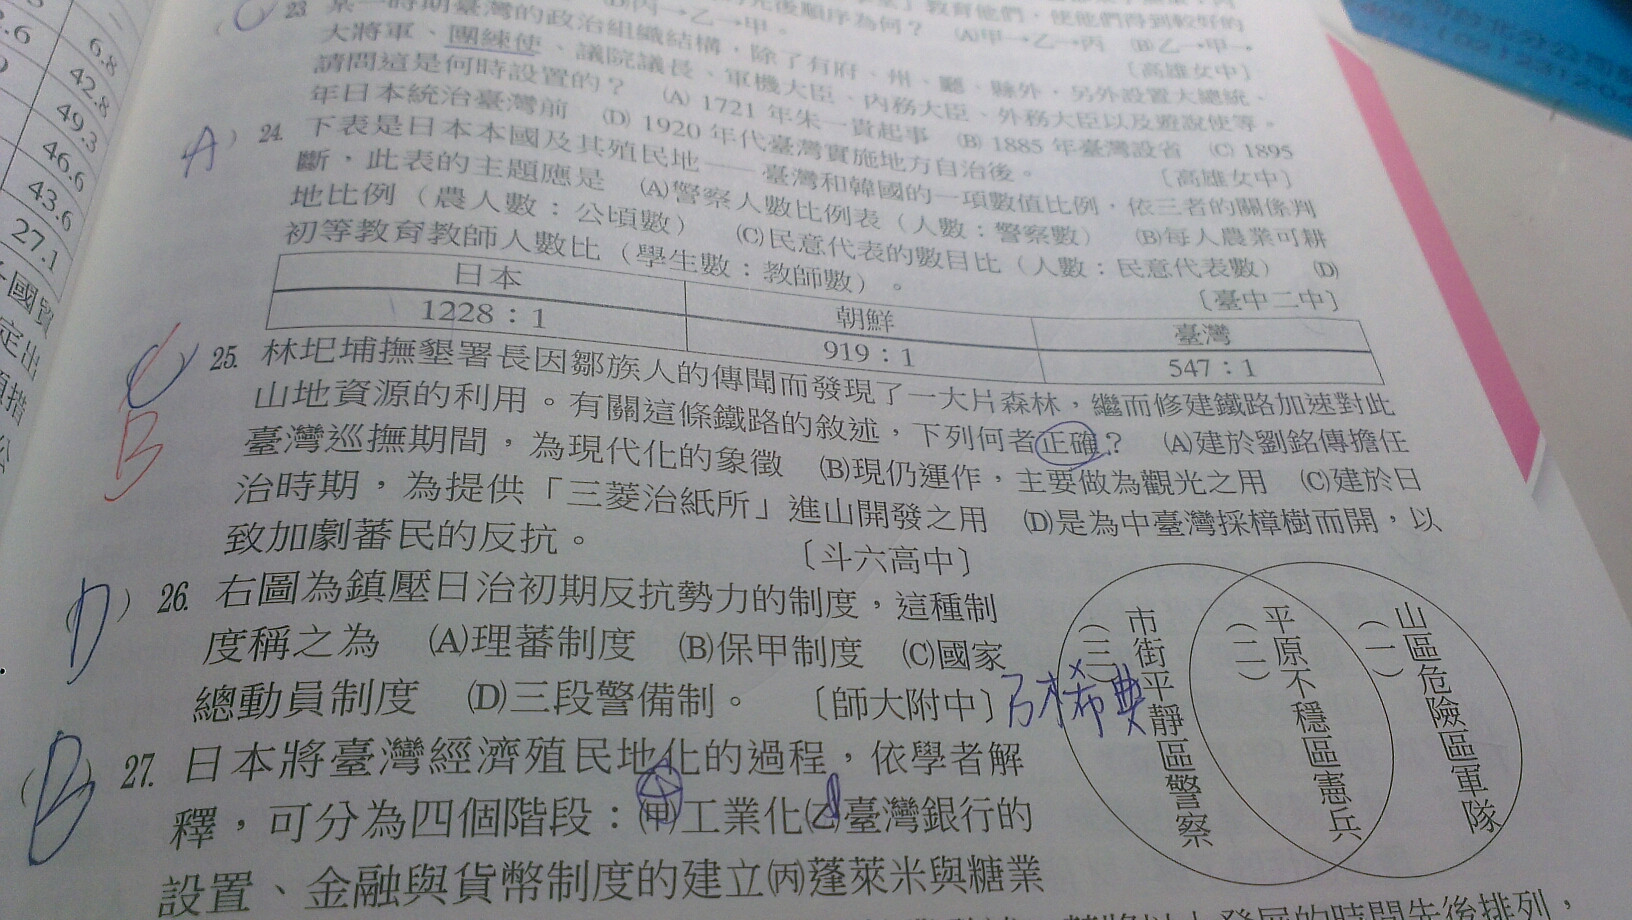 6.8
42.8
49.3
46.6
43.6
27.1
23. 某一時期臺灣的政治組織結構，除了有府、州、廳、縣外，另外設置大總統、
大將軍、團練使、議院議長、軍機大臣、內務大臣、外務大臣以及遊說使等。
請問這是何時設置的？ (A) 1721 年朱一貴起事 (B) 1885 年臺灣設省 (C) 1895
年日本統治臺灣前 (D) 1920 年代臺灣實施地方自治後。 〔高雄女中〕
A ) 24. 下表是日本本國及其殖民地——臺灣和韓國的一項數值比例，依三者的關係判
斷，此表的主題應是 (A)警察人數比例表（人數：警察數） (B)每人農業可耕
地比例（農人數：公頃數） (C)民意代表的數目比（人數：民意代表數） (D)
初等教育教師人數比（學生數：教師數）。 〔臺中二中〕
日本 朝鮮 臺灣
1228：1 919：1 547：1
C B 25. 林圯埔撫墾署長因鄒族人的傳聞而發現了一大片森林，繼而修建鐵路加速對此
山地資源的利用。有關這條鐵路的敘述，下列何者正確？ (A)建於劉銘傳擔任
臺灣巡撫期間，為現代化的象徵 (B)現仍運作，主要做為觀光之用 (C)建於日
治時期，為提供「三菱治紙所」進山開發之用 (D)是為中臺灣採樟樹而開，以
致加劇蕃民的反抗。 〔斗六高中〕
(D) 26. 右圖為鎮壓日治初期反抗勢力的制度，這種制
度稱之為 (A)理蕃制度 (B)保甲制度 (C)國家
總動員制度 (D)三段警備制。 〔師大附中〕
乃木希典
山區危險區軍隊(一)
平原不穩區憲兵(二)
市街平靜區警察(三)
(B) 27. 日本將臺灣經濟殖民地化的過程，依學者解
釋，可分為四個階段：(甲)工業化(乙)臺灣銀行的
設置、金融與貨幣制度的建立(丙)蓬萊米與糖業